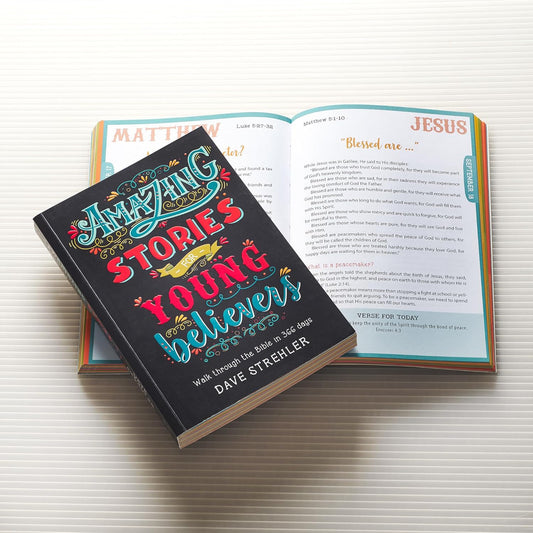 AMAZING
STORIES
FOR
YOUNG
believers
Walk through the Bible in 366 days
DAVE STREHLER
MATTHEW
Luke 5:27-32
Matthew 5:1-10
JESUS
"Blessed are ..."
While Jesus was in Galilee, He said to His disciples:
"Blessed are those who trust God completely, for they will become part
of God's heavenly kingdom.
Blessed are those who are sad, for in their sadness they will experience
the loving comfort of God the Father.
Blessed are those who are humble and gentle, for they will receive what
God has promised.
Blessed are those who long to do what God wants, for God will fill them
with His Spirit.
Blessed are those who show mercy and are quick to forgive, for God will
be merciful to them.
Blessed are those whose hearts are pure, for they will see God and live
with Him.
Blessed are peacemakers who spread the peace of God to others, for
they will be called the children of God.
Blessed are those who are treated harshly because they love God, for
happy days are waiting for them in heaven."
What is a peacemaker?
the angels told the shepherds about the Earth of Jesus, they said,
to God in the highest, and peace on earth to those with whom He is
(Luke 2:14).
peacemaker means more than stopping a fight at school or
friends to quit arguing. To be a peacemaker, we need to spend
God so that His peace can fill our hearts.
VERSE FOR TODAY
keep the unity of the Spirit through the bond of peace.
EPHESIANS 4:3
SEPTEMBER 18